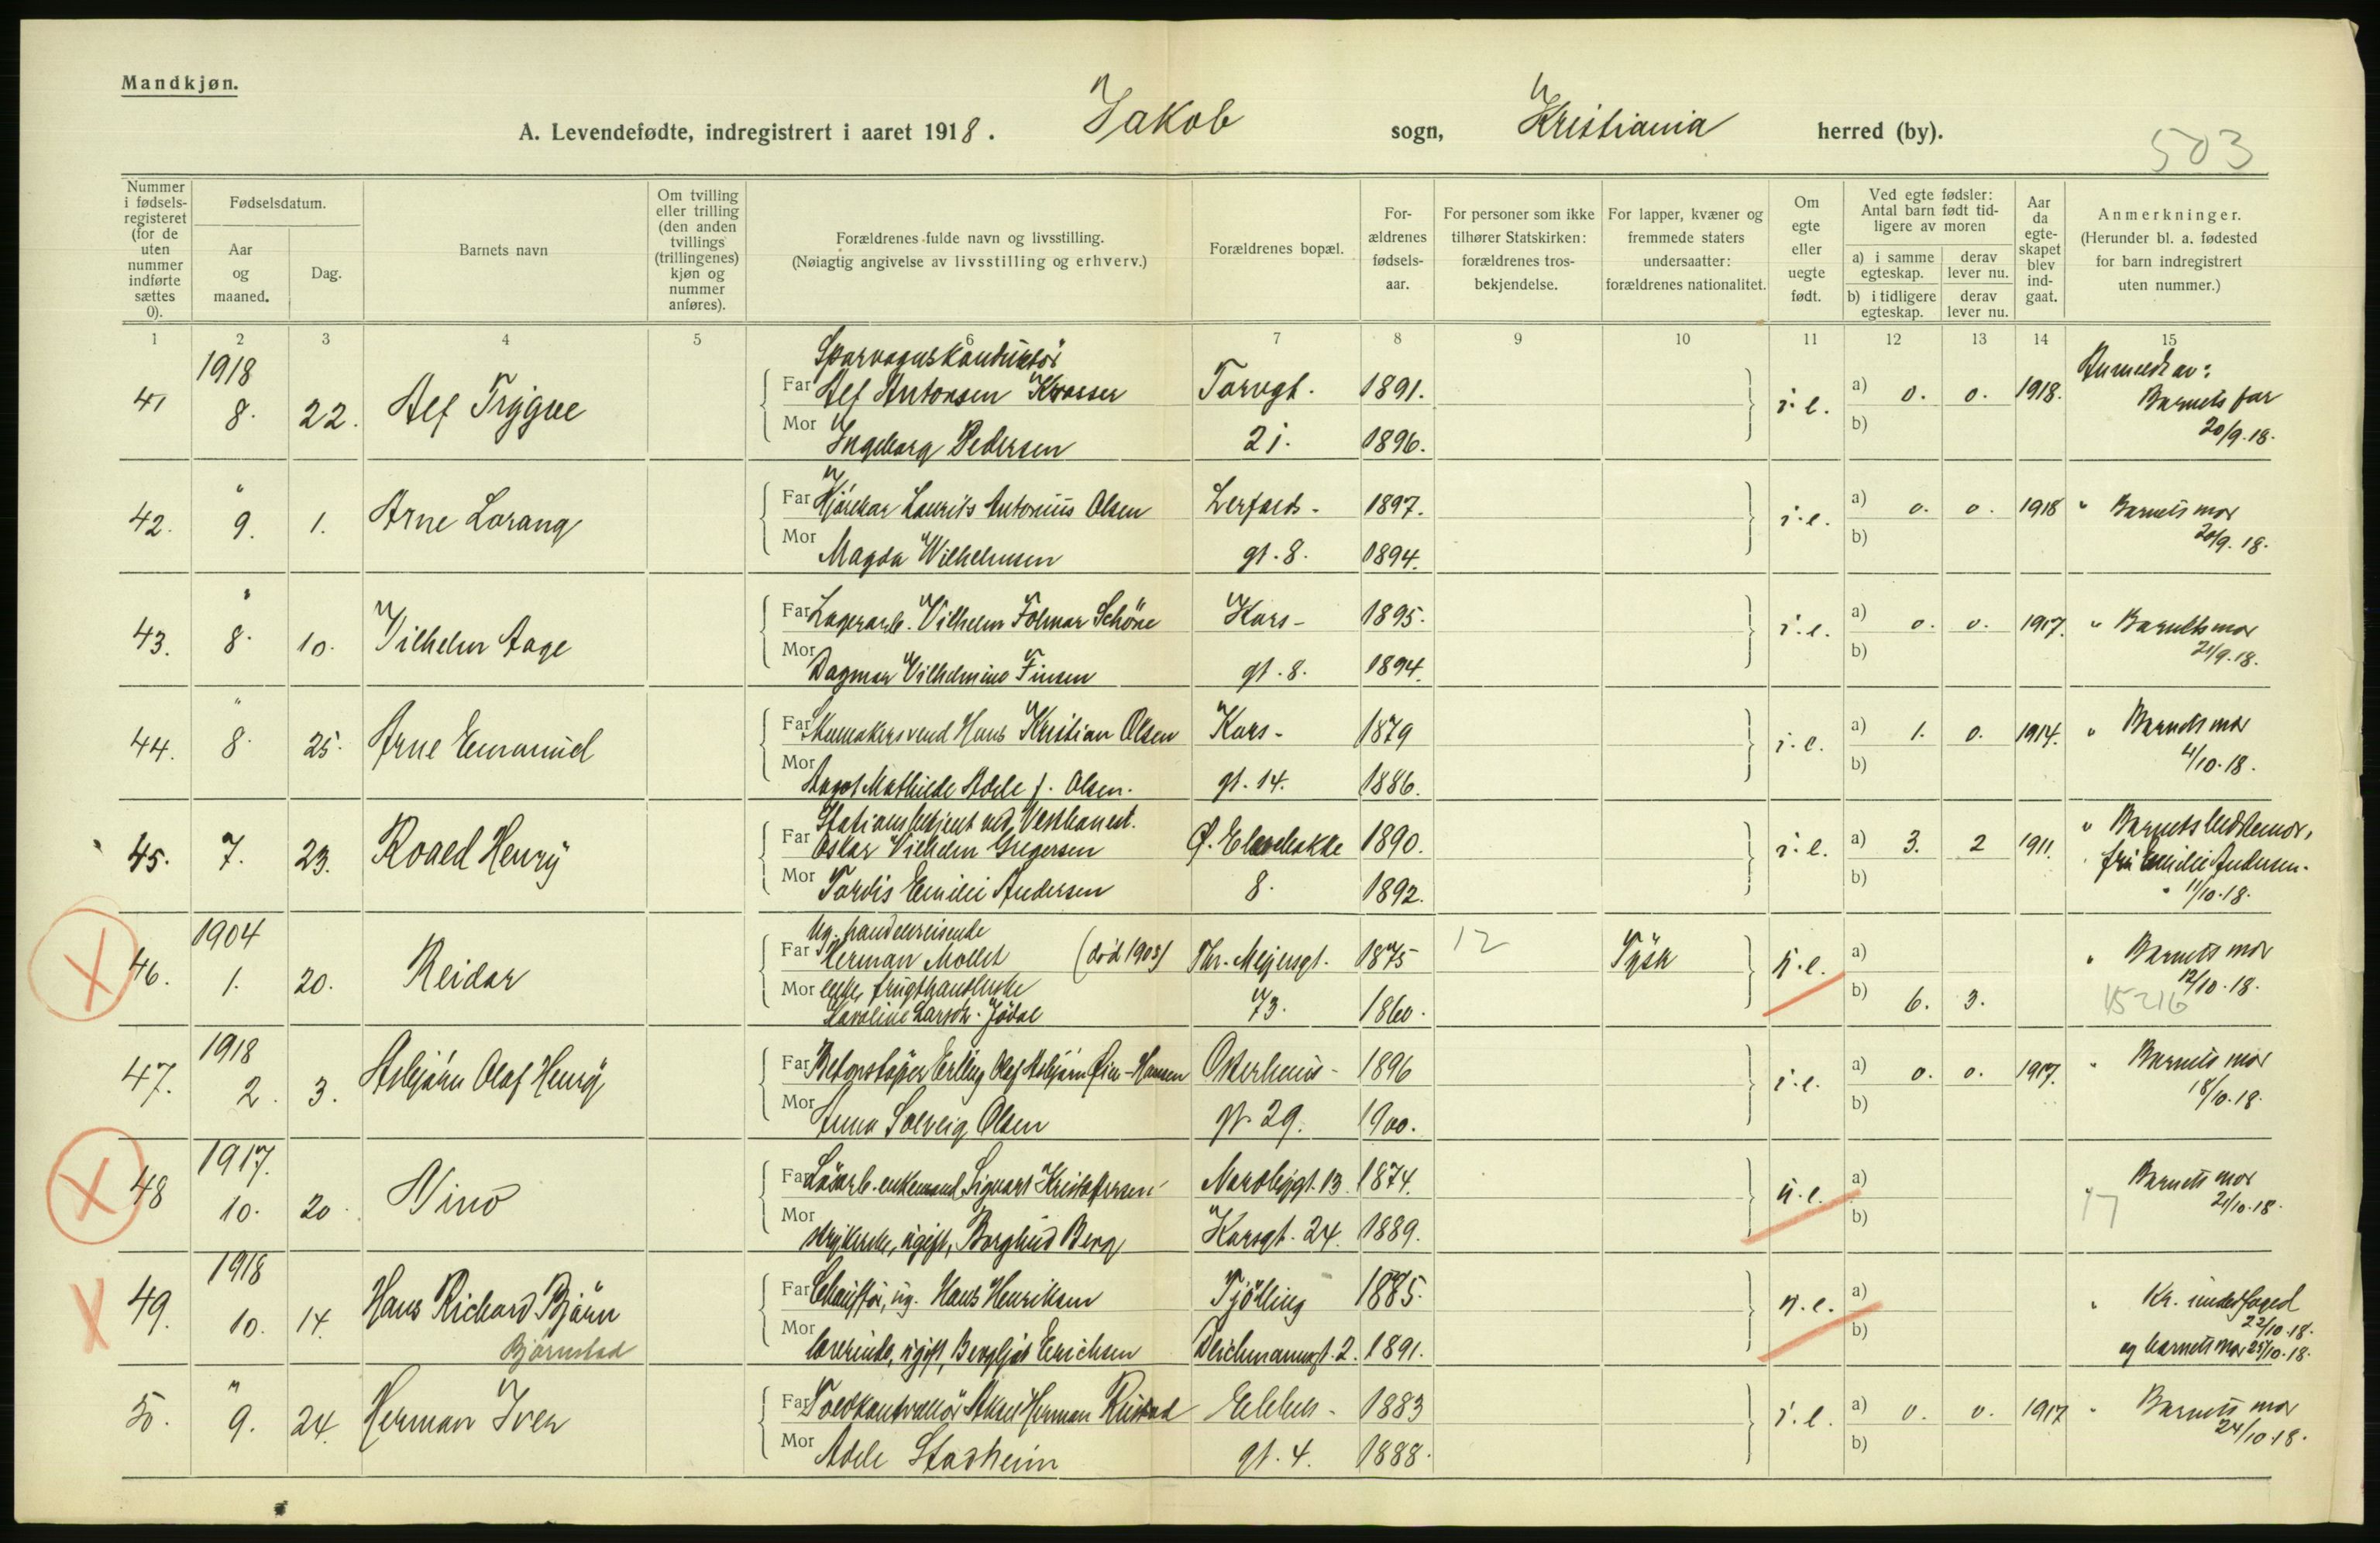 Mandkjøn.
A. Levendefødte, indregistrert i aaret 1918. Jakob sogn, Kristiania herred (by).
503
Nummer i fødsels-registeret (for de uten nummer indførte sættes 0).
Fødselsdatum.
Aar og maaned.
Dag.
Barnets navn
Om tvilling eller trilling (den anden tvillings (trillingenes) kjøn og nummer anføres).
Forældrenes fulde navn og livsstilling.
(Nøiagtig angivelse av livsstilling og erhverv.)
Forældrenes bopæl.
For-ældrenes fødsels-aar.
For personer som ikke tilhører Statskirken: forældrenes tros-bekjendelse.
For lapper, kvæner og fremmede staters undersaatter: forældrenes nationalitet.
Om egte eller uegte født.
Ved egte fødsler: Antal barn født tid-ligere av moren
a) i samme egteskap.
derav lever nu.
b) i tidligere egteskap.
derav lever nu.
Aar da egte-skapet blev ind-gaat.
Anmerkninger.
(Herunder bl. a. fødested for barn indregistrert uten nummer.)
1 2 3 4 5 6 7 8 9 10 11 12 13 14 15
1918 Sporvognskonduktör Anmeldt av:
41 8. 22. Alf Trygve Far Alf Antonsen Torvgt. 1891. i. e. a) 0. 0. 1918. Barnets far
Mor Ingeborg Pedersen 21. 1896. b) 20/9.18.
42. " 9. 1. Arne Lorang Far Laurits Antonius Olsen 1897. i. e. a) 0. 0. 1918 " Barnets mor
Mor Magda Wilhelmsen gt. 8. 1894. b) 20/9.18.
43. " 8. 10. Vilhelm Aage Far Lagerarb. Vilhelm Folmar Schöne Kors- 1895. i. e. a) 0. 0. 1917. " Barnets mor
Mor Dagmar Vilhelmine Finsen gt. 8. 1894. b) 21/9.18.
44. " 8. 25. Arne Emanuel Far Skomakersvend Hans Kristian Olsen Kors- 1879 i. e. a) 1. 0. 1914. " Barnets mor
Mor Mathilde Adele f. Olsen. gt. 14. 1886. b) 4/10.18.
Stationsbetjent ved Vestbanest. " Barnets bedstemor,
45. 7. 23. Roald Henry Far Oskar Vilhelm Gregersen Ø. Elvebakke 1890. i. e. a) 3. 2 1911. fru Emilie Andersen.
Mor Tordis Emilie Andersen 8. 1892. b) 11/10.18.
1904 Ug. handelsreisende
46. 1. 20. Reidar Far Herman (død 1905) Thr. Meyersgt. 1875 12 Tysk u. e. a) " Barnets mor
Mor enke, frugthandlerske 73. 1860. b) 6. 3. 12/10.18.
Karoline Larsen 15216
1918
47. 2. 3. Asbjørn Olaf Henry Far Betonstøper Erling Olaf Asbjørn Osterhaus- 1896 i. e. a) 0. 0. 1917. " Barnets mor
Mor Anna Solveig Olsen gt. 29. 1900. b) 18/10.18.
1917.
48 10. 20 Vino Far enkemand Sigvart Kristofersen Nordbygt. 13. 1874. u. e. a) Barnets mor
Mor ugift, Borghild Berg Korsgt. 24. 1889. b) 17 21/10.18.
1918
49. 10. 14. Hans Richard Bjärn Far Chauffør, ug. Hans Henriksen Tjölling 1885. u. e. a) " Kr. underfoged
Bjørnstad 22/10.18.
Mor lærerinde, ugift, Bergljot Erichsen Deichmannsgt. 2. 1891. b) og barnets mor 25/10.18.
50. " 9. 24. Herman Iver Far Toldkontrollör Herman 1883 i. e. a) 0. 0. 1917 " Barnets mor
Mor Adele Stasheim gt. 4. 1888. b) 24/10.18.